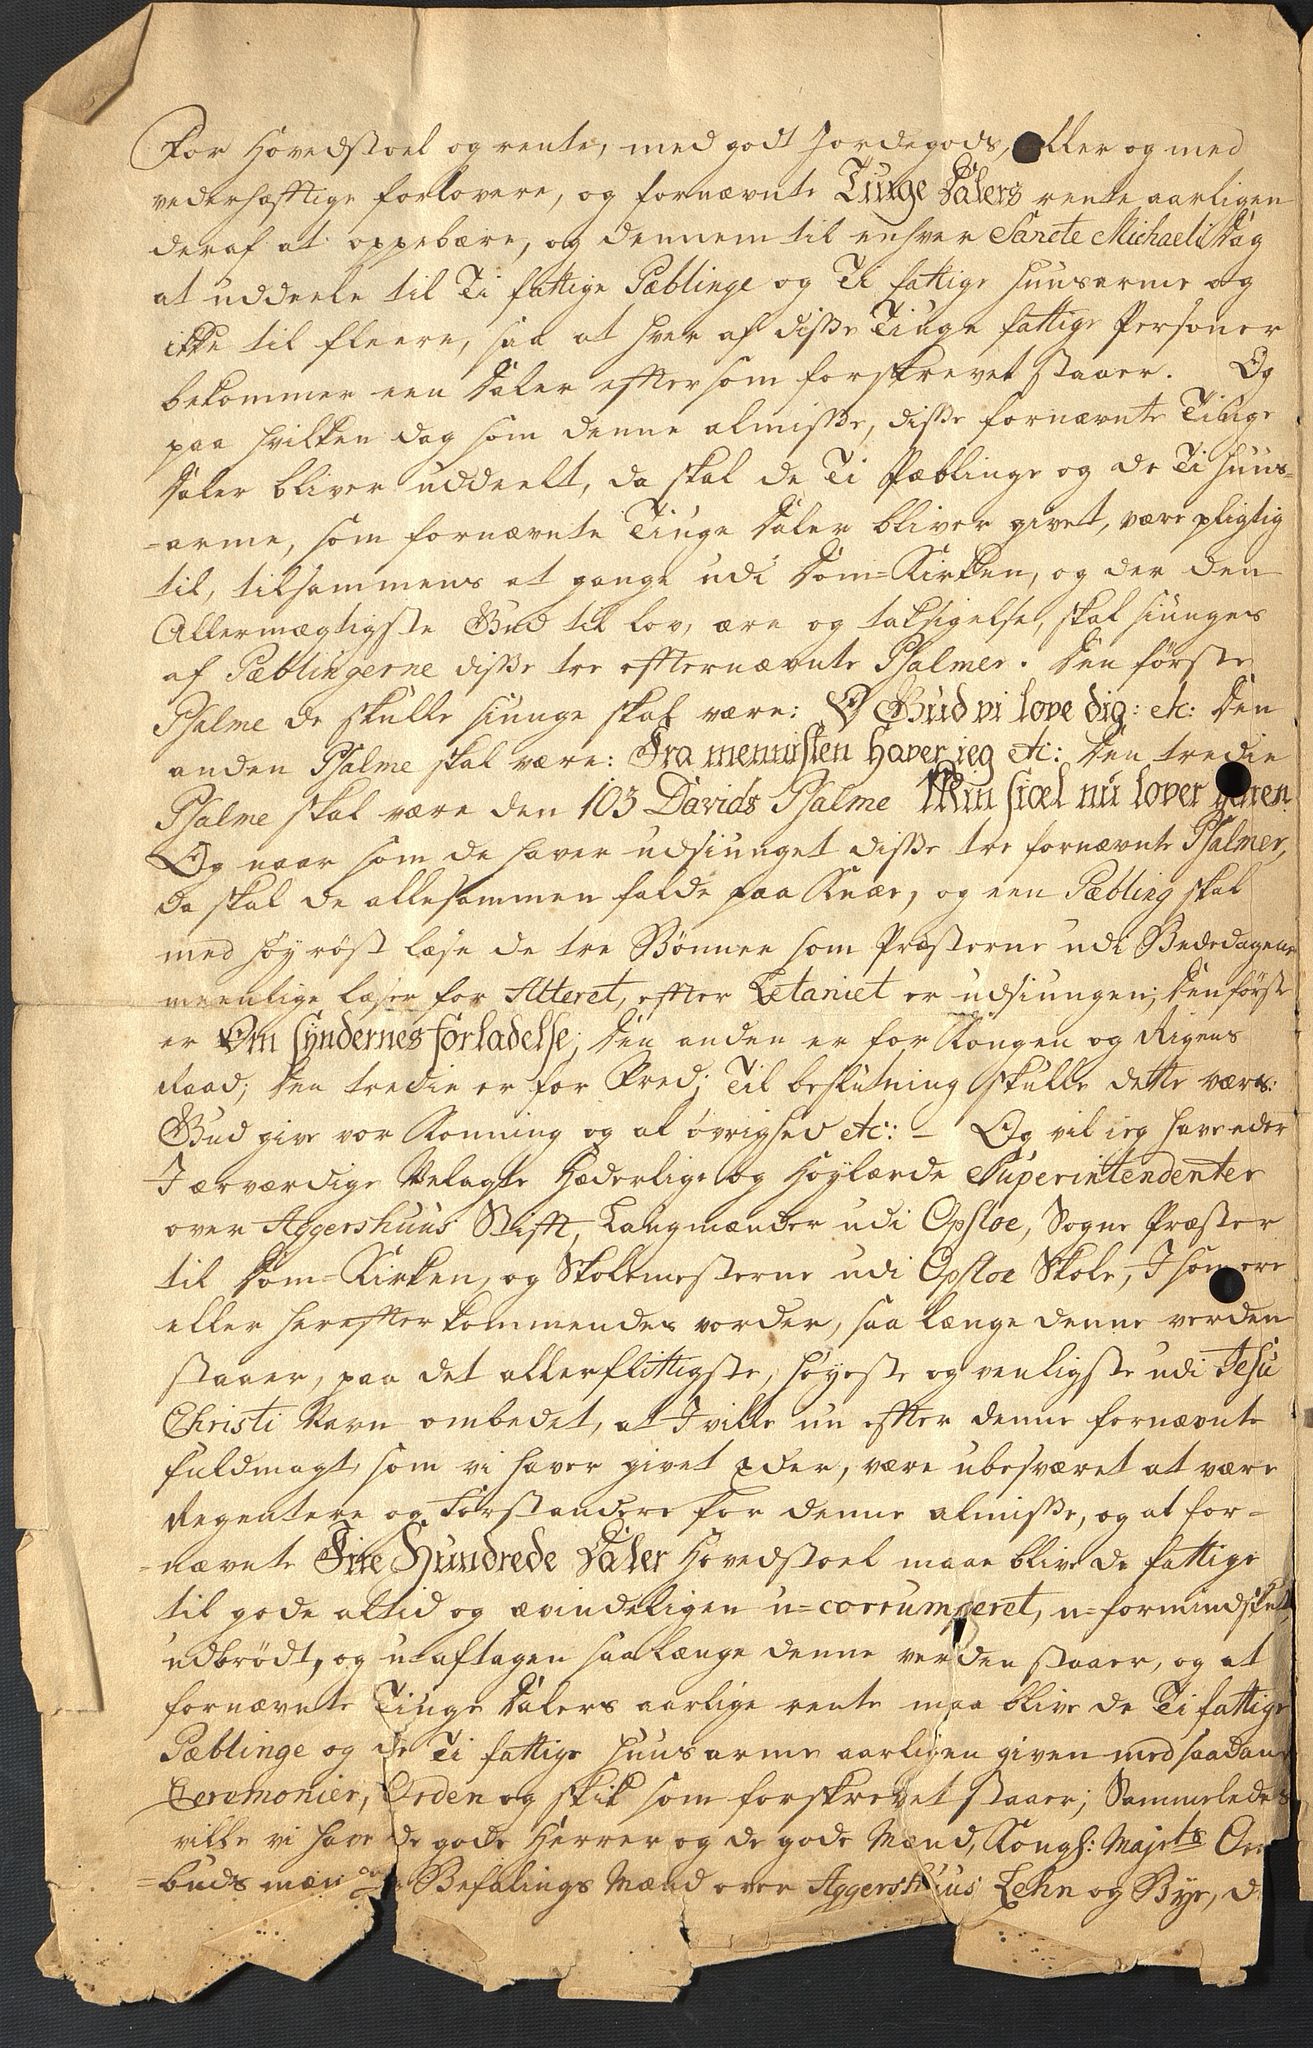 For Hovedstoel og rente, med godt Jordegods, eller og med
vederhæftige forlovere, og fornævnte Tiuge Dalers rente aarligen
deraf at oppebære, og dennem til enhver Sancte Michaelis Dag
at uddeele til Ti fattige Pæblinge og Ti fattige Huusarme og
ikke til fleere, saa at hver af disse Tiuge fattige Personer
bekommer een Daler eftersom forskrevet staaer. Og
paa hvilken dag som denne almisse, disse fornævnte Tiuge
Daler bliver uddeelt, da skal de Ti Pæblinge og de Ti Huus-
-arme, som fornævnte Tiuge Daler bliver givet, være pligtig
til, tilsammens at gange udi Dom-Kirken, og der den
Allermægtigste Gud til lov, ære og taksigelse, skal siunges
af Pæblingerne disse tre efternævnte Psalmer. Den første
Psalme de skulle siunge skal være: O Gud vi love dig: etc: Den
anden Psalme skal være: Fra mennisken haver ieg etc: Den tredie
Psalme skal være den 103 Davids Psalme Min siæl nu lover Herren.
Og naar som de haver udsiunget disse tre fornævnte Psalmer,
Da skal de allesammen falde paa Knær, og een Pæbling skal
med høy røst læse de tre Bønner som Præsterne udi Bededagene
meenlige læser for Alteret, efter Letaniet er udsiungen; Den første
er Om syndernes forladelse; Den anden er for Kongen og Rigens
Raad; Den tredie er for Fred; Til beslutning skulle dette være:
Gud give vor Konning og al øvrighed etc: - Og vil ieg have eder
I ærværdige Velagte Hæderlige og Høylærde Superintendenter
over Aggershuus Stift, Laugmænder udi Opsloe, Sogne Præster
til Dom-Kirken, og Skolemesterne udi Opsloe Skole, I som ere
eller herefter kommendes vorder, saa længe denne verden
staaer, paa det allerflittigste, høyeste og venligste udi Jesu
Christi Navn ombedet, at I ville nu efter denne fornævnte
fuldmagt, som vi haver givet Eder, være ubesværet at være
Regentere og Forstandere for denne almisse, og at for-
-nævnte Fire Hundrede Daler Hovedstoel maae blive de fattige
til gode altid og ævindeligen u-corrumperet, u-formindsket,
udbrødt, og u-aftagen saa længe denne verden staaer, og at
fornævnte Tiuge Dalers aarlige rente maa blive de Ti fattige
Pæblinge og de Ti fattige Huusarme aarligen given med saadane
Ceremonier, Orden og skik som forskrevet staaer; Sammeledes
ville vi have de gode Herrer og de gode Mænd, Kongl: Majets
-buds mæn Befalings Mænd over Aggershuus Lehn og Bye, d